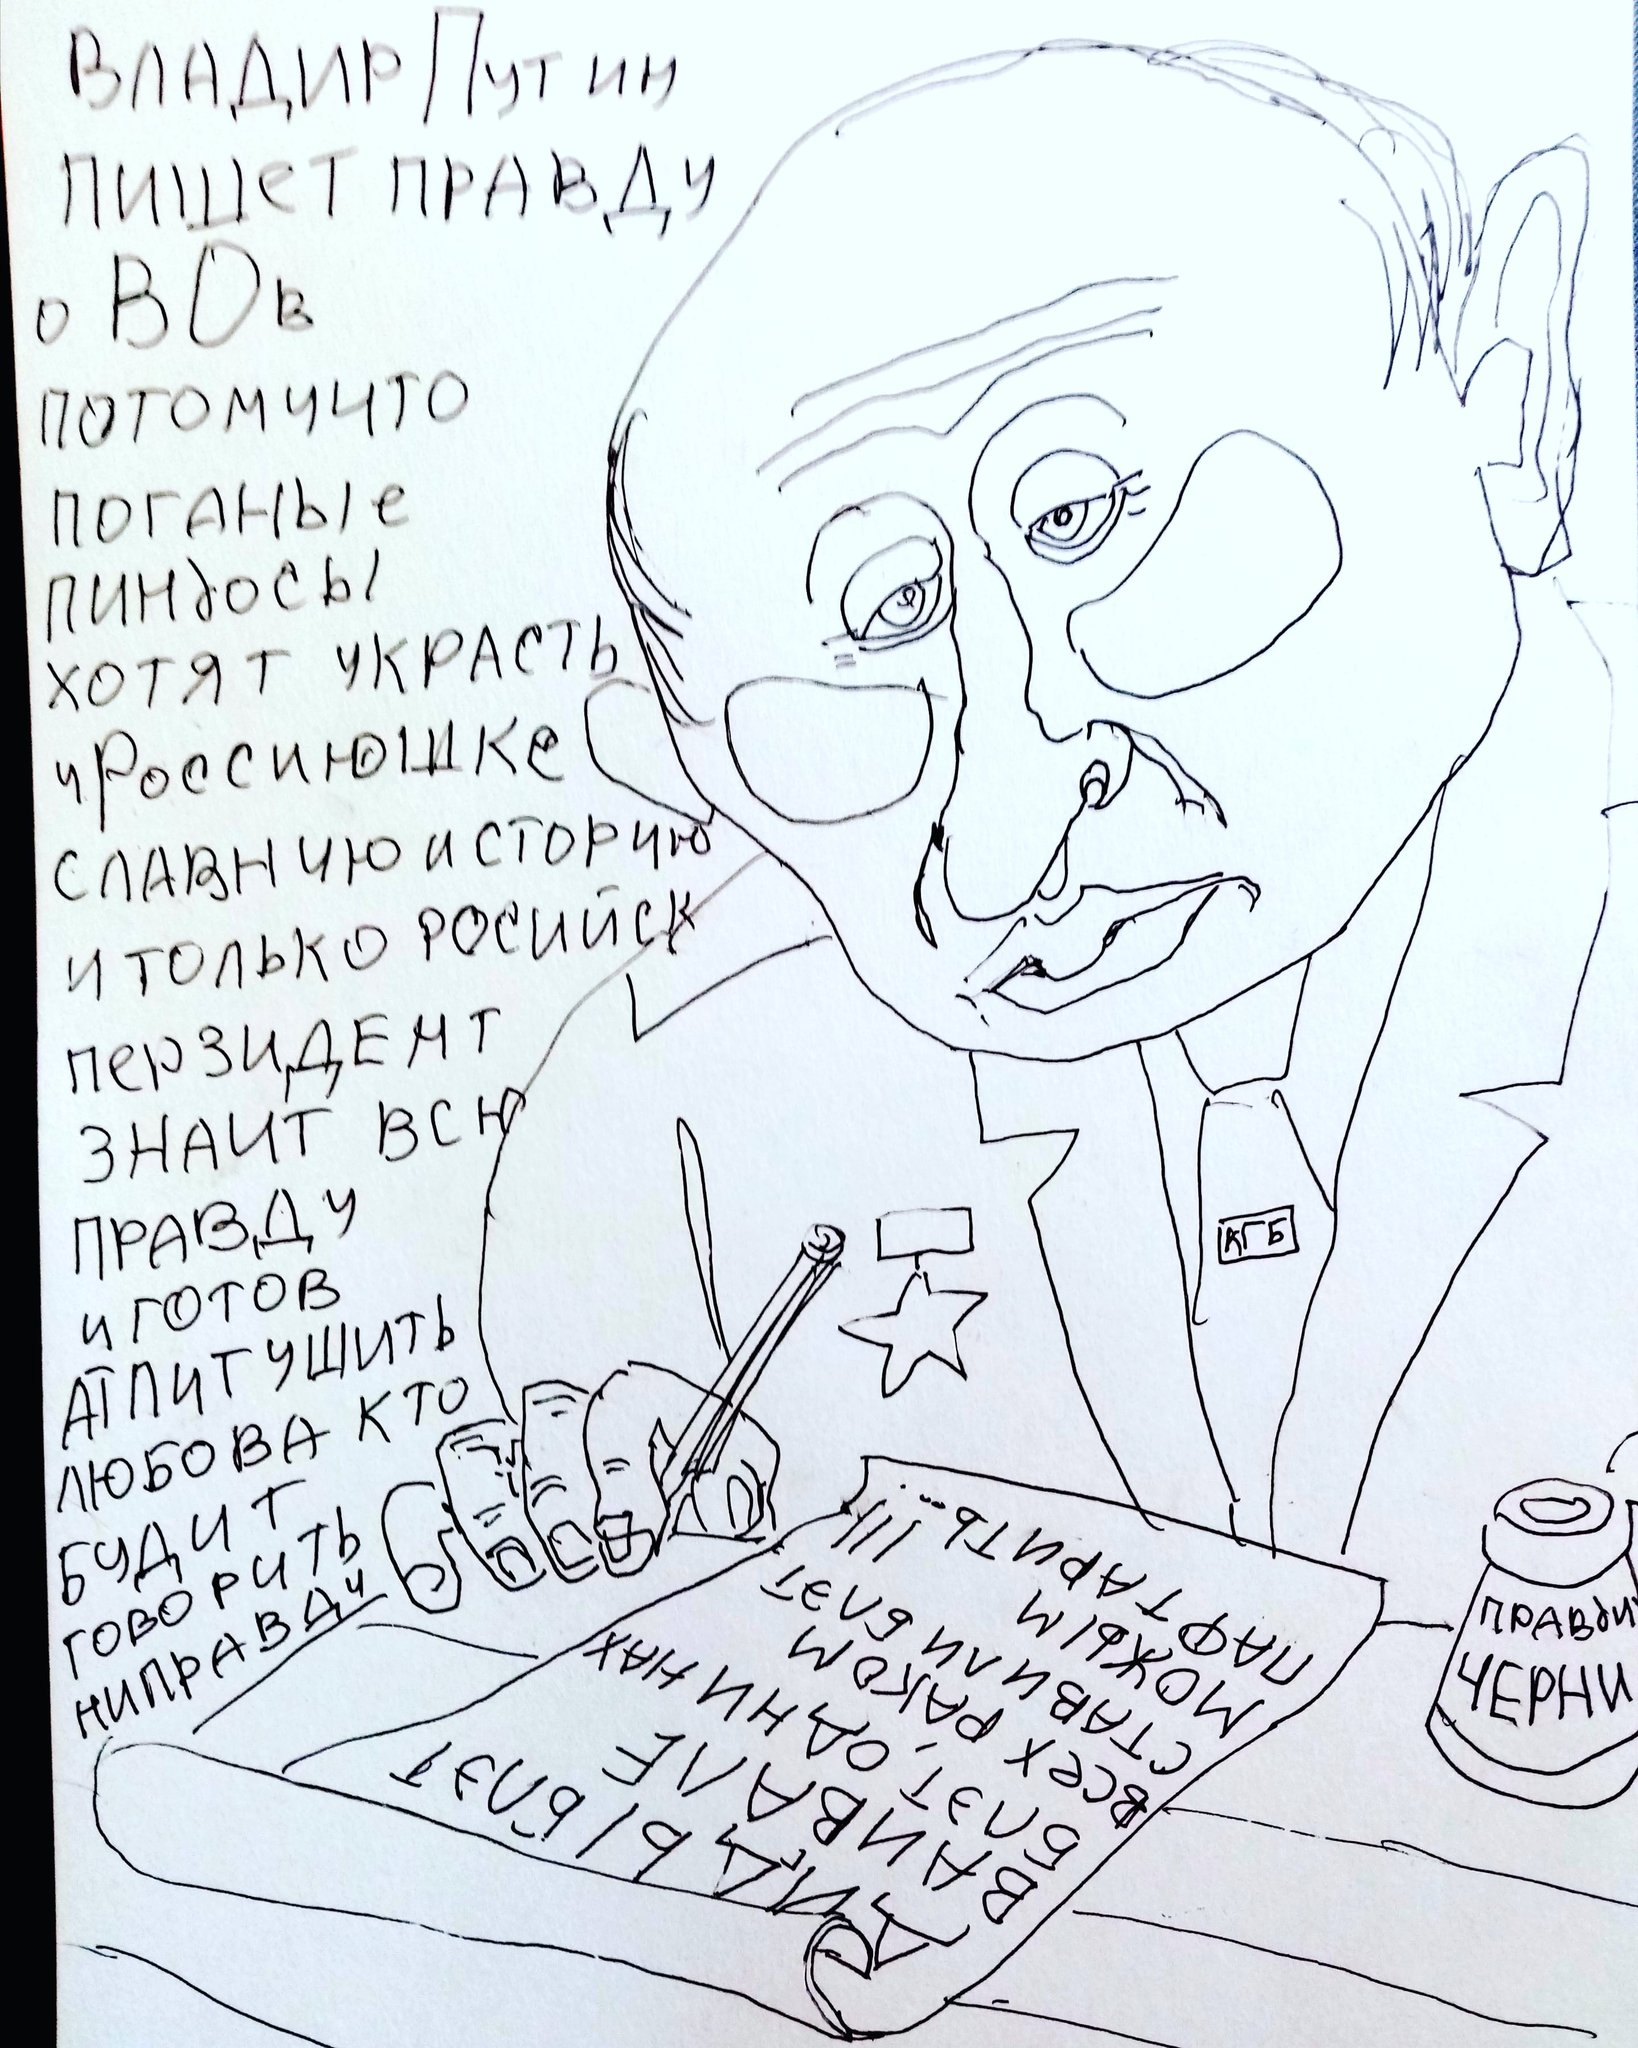 ВЛАДИР ПУТИН
ПИШЕТ ПРАВДУ
о ВОв
ПОТОМУЧТО
ПОГАНЫЕ
ПИНДОСЫ
ХОТЯТ УКРАСТЬ
У РОССИЮШКЕ
СЛАВНУЮ ИСТОРИЮ
И ТОЛЬКО РОСИЙСК
ПЕРЗИДЕНТ
ЗНАИТ ВСЮ
ПРАВДУ
И ГОТОВ
АТПИТУШИТЬ
ЛЮБОВА КТО
БУДИТ
ГОВОРИТЬ
НИПРАВДУ
КГБ
ДИДЫ БЛЭТ
ВАИВАЛЕ
БЛЭТ, ОДНИ НАХ
ВСЕХ РАКОМ
СТАВИЛИ БЛЭТ
МОЖЫМ
ПАФТАРИТЬ...!!!
ПРАВДИ
ЧЕРНИ